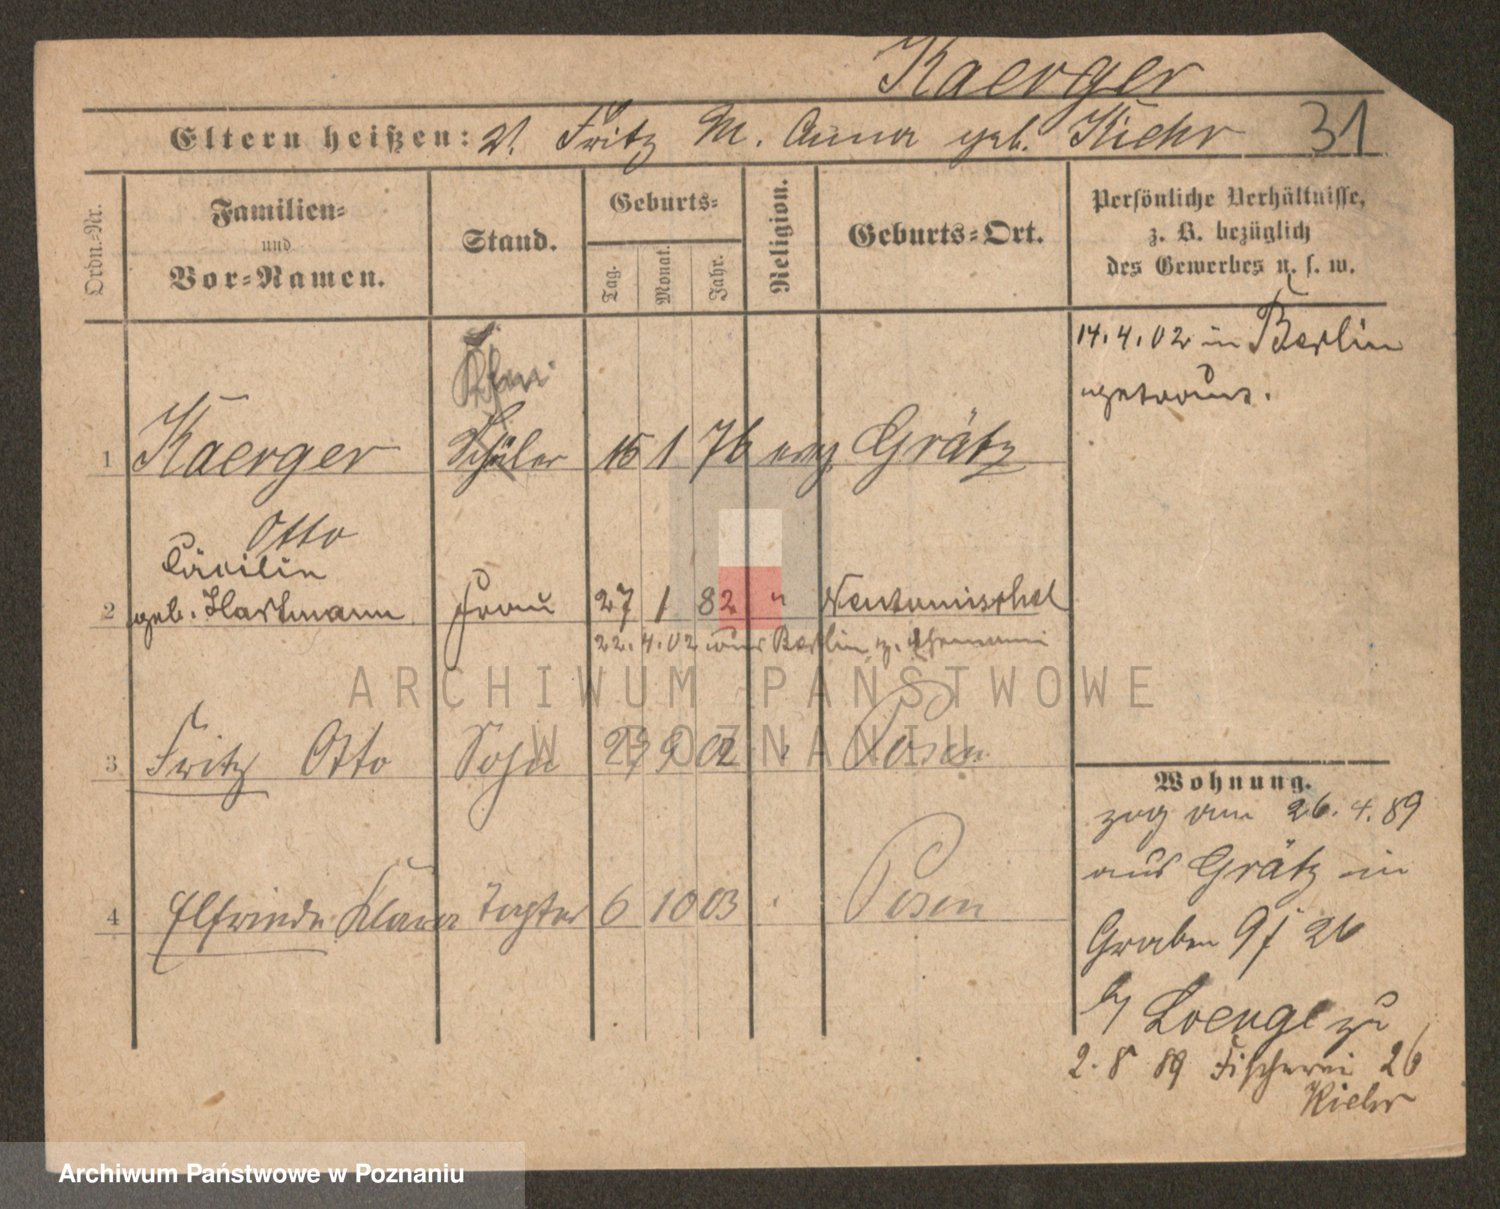 Kaerger
Eltern heißen: V. Fritz M. Anna geb. Kiehr 31
Ordn.-Nr.
Familien-
und
Vor-Namen.
Stand.
Geburts-
Tag.
Monat.
Jahr.
Religion.
Geburts-Ort.
Persönliche Verhältnisse,
z. B. bezüglich
des Gewerbes u. s. w.
14.4.02 in Berlin
getraut.
1 Kaerger Schüler 15 1 76 evg Grätz
Otto
Cäcilie
2 geb. Hartmann Frau 27 1 82 " Neutomischel
22.4.02 aus Berlin z. Ehemann
3 Fritz Otto Sohn 02 Posen
4 Elfriede Klara Tochter 6 10 03 Posen
Wohnung.
zog am 26.4.89
aus Grätz in
Graben 9 / 26
zu
2.8 89 Fischerei 26
Kiehr
ARCHIWUM PAŃSTWOWE
W POZNANIU
Archiwum Państwowe w Poznaniu